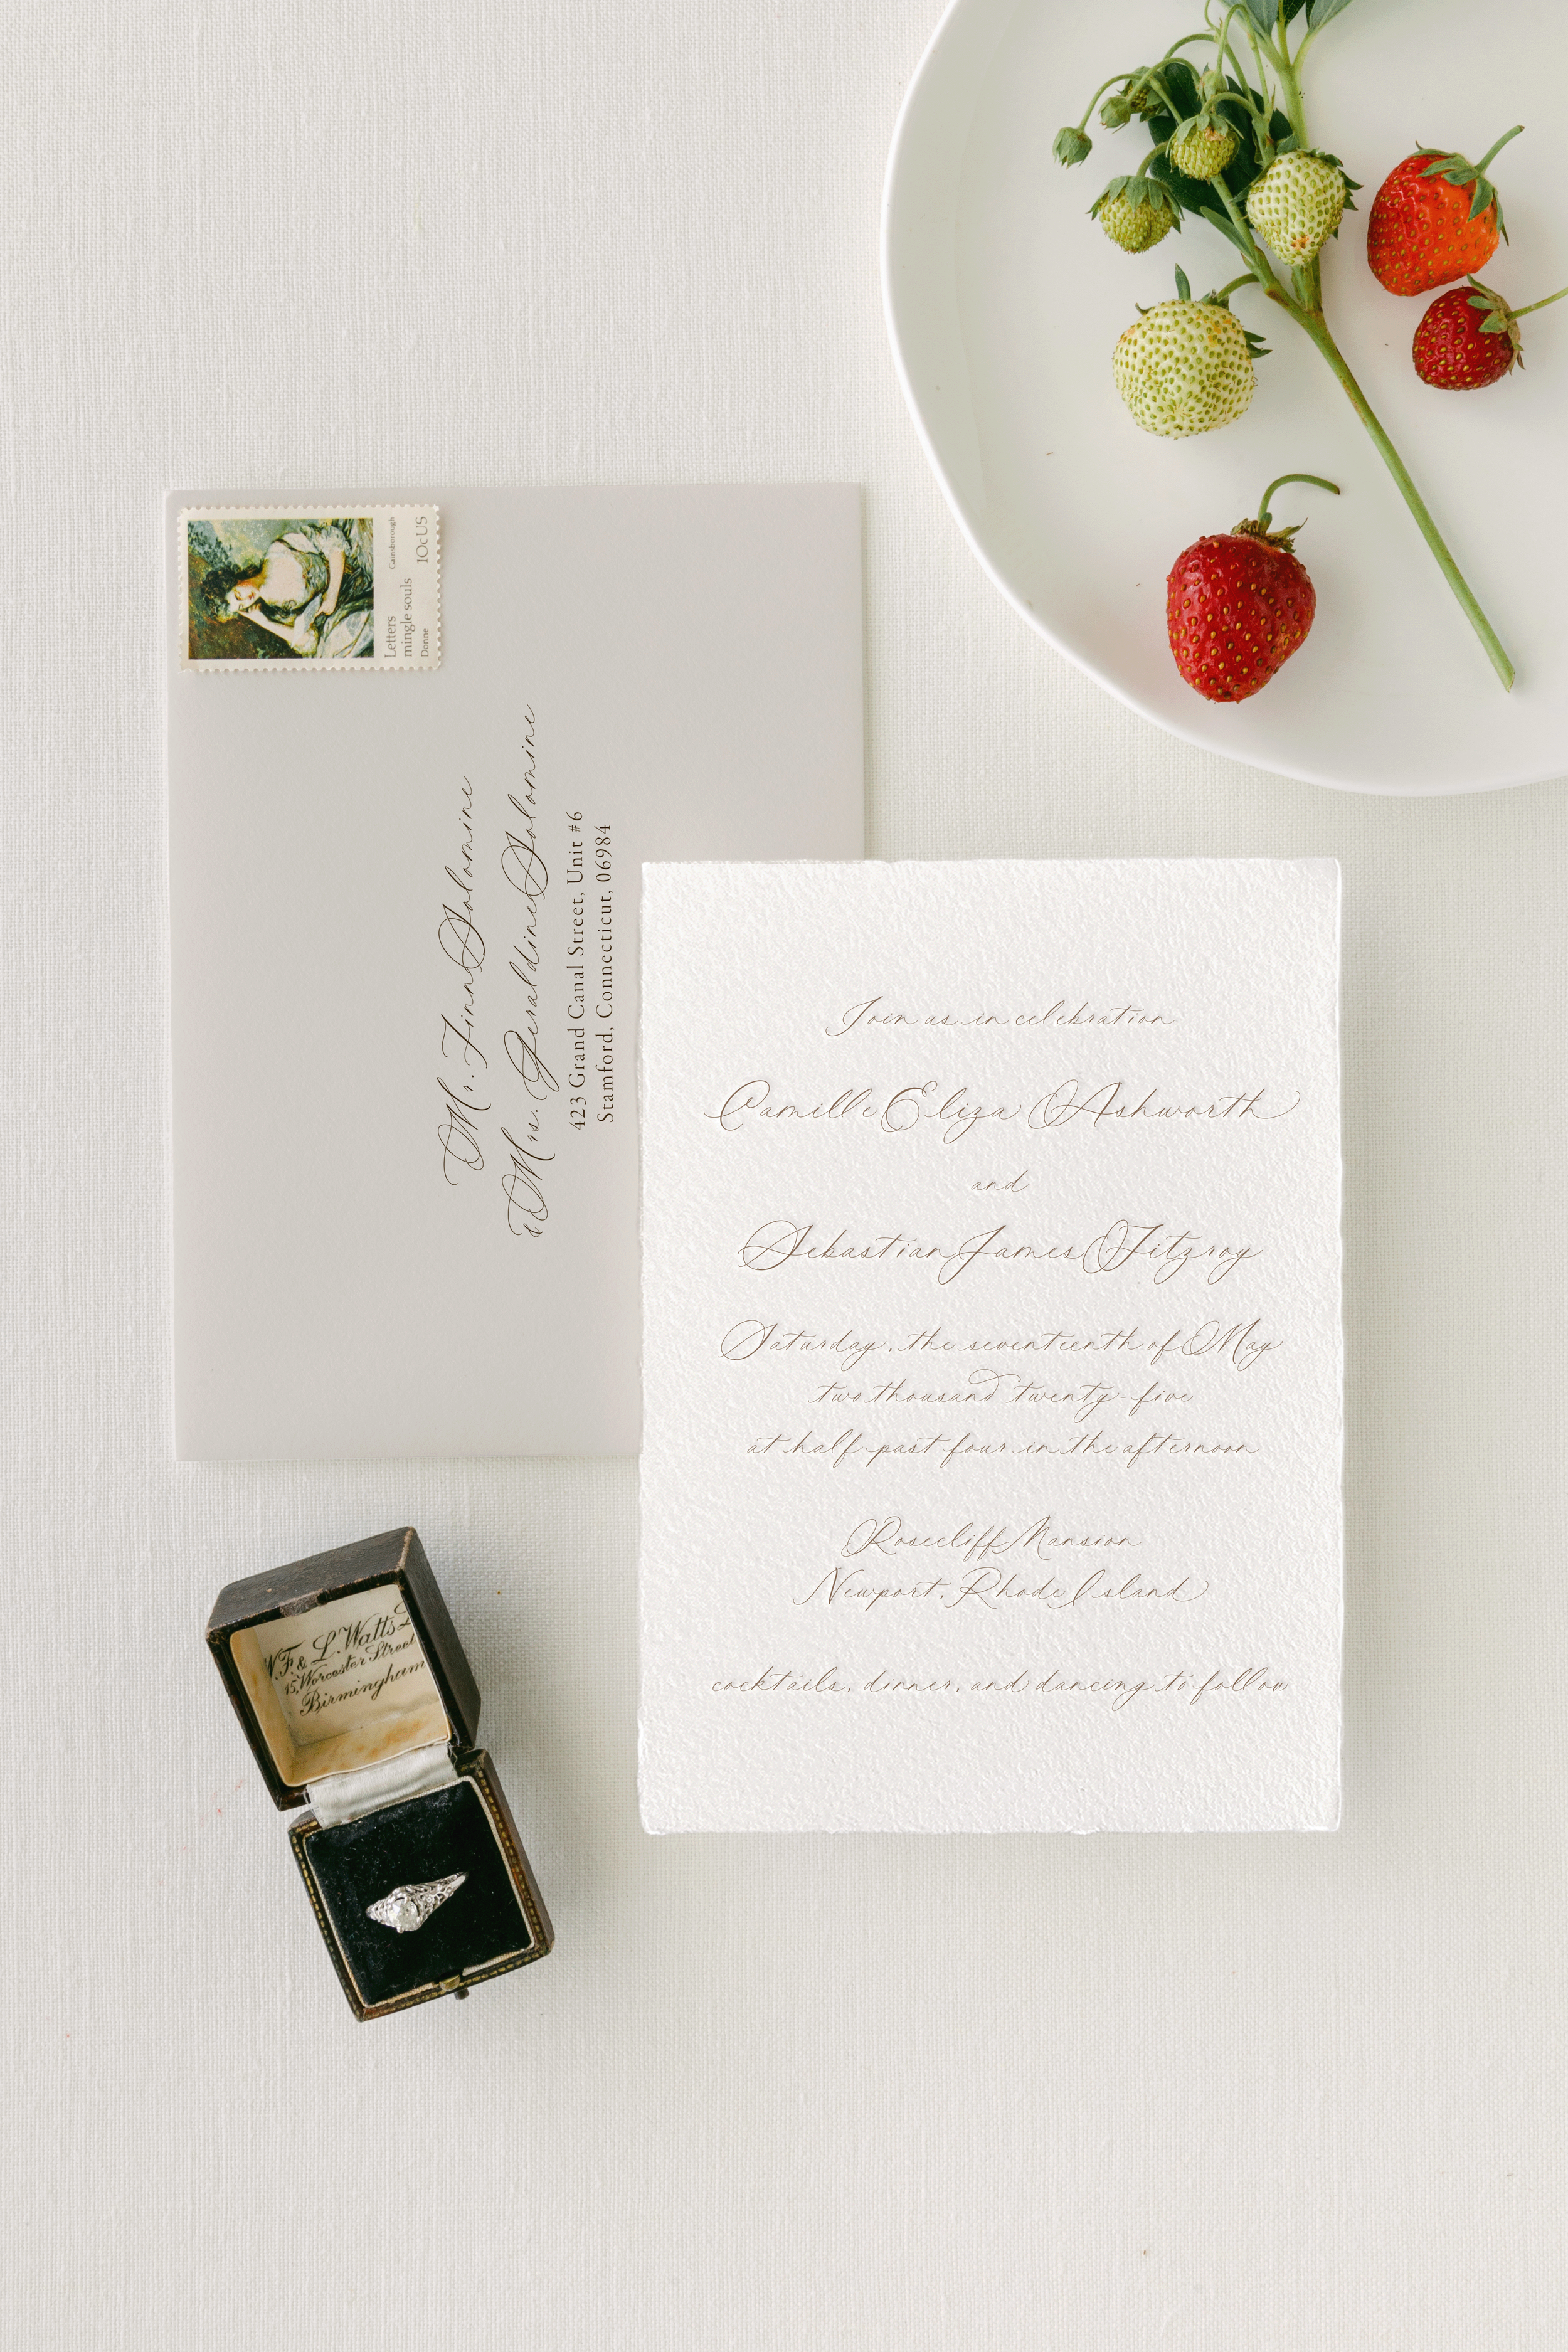 Letters
mingle souls
Donne
Gainsborough
10cUS
Mr. Finn Solomine
& Mrs. Geraldine Solomine
423 Grand Canal Street, Unit #6
Stamford, Connecticut, 06984
Join us in celebration
Camille Eliza Ashworth
and
Sebastian James Fitzroy
Saturday, the seventeenth of May
two thousand twenty-five
at half past four in the afternoon
Rosecliff Mansion
Newport, Rhode Island
cocktails, dinner, and dancing to follow
W.F. & L. Watts
15, Worcester Street
Birmingham